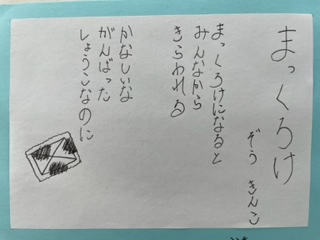 まっくろけ
ぞう きんこ
まっくろけになると
みんなから
きらわれる
かなしいな
がんばった
しょうこなのに